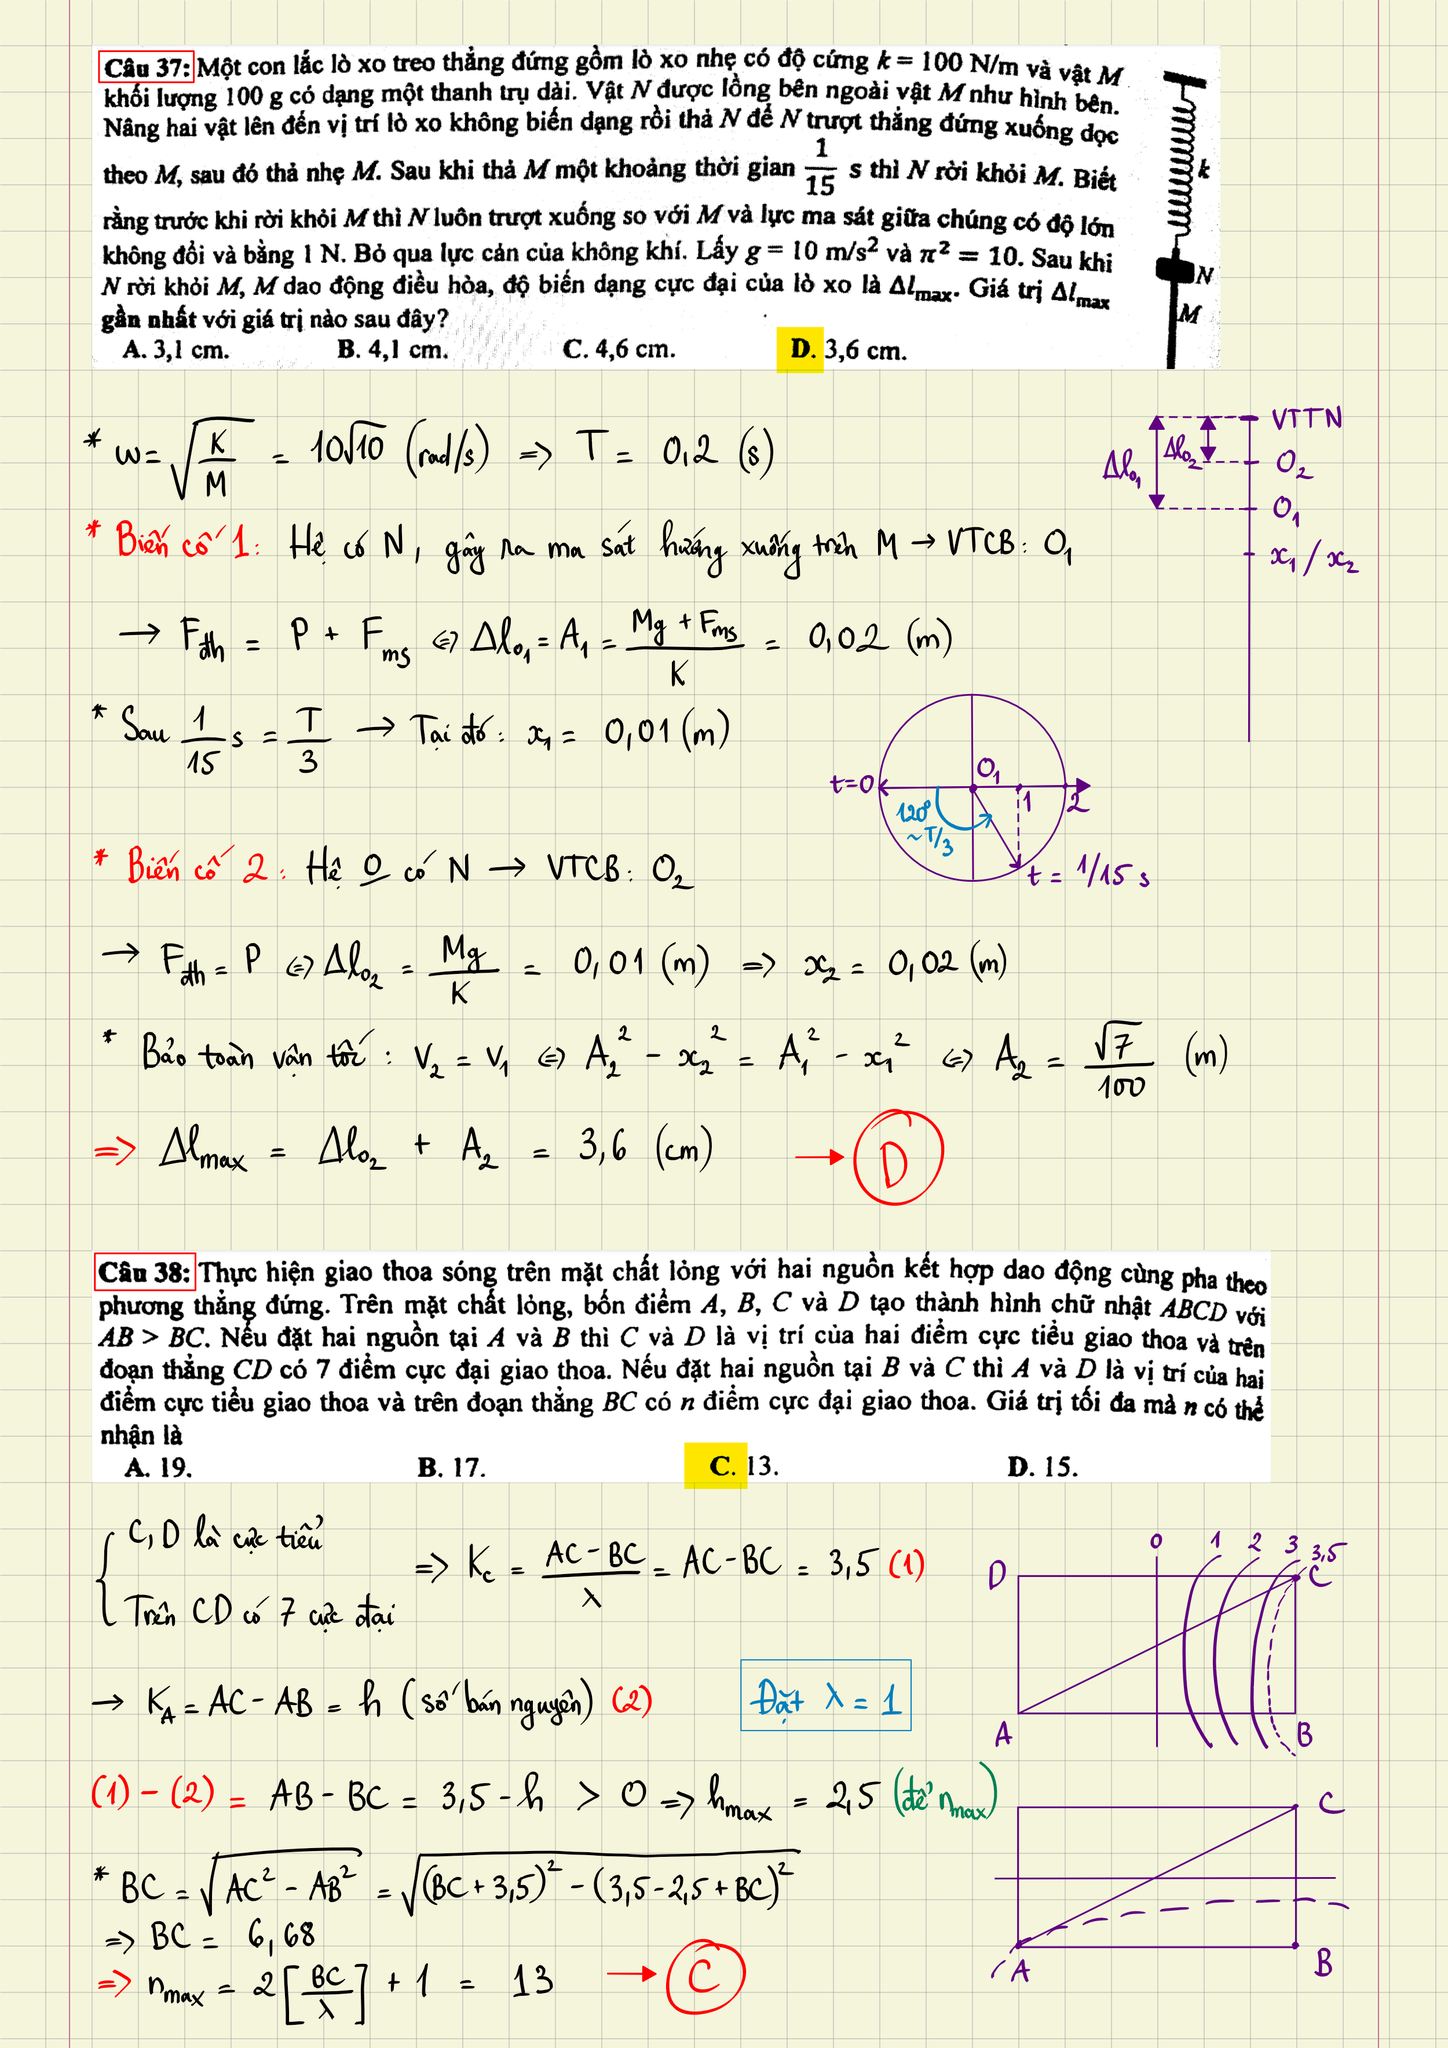 Câu 37: Một con lắc lò xo treo thẳng đứng gồm lò xo nhẹ có độ cứng k = 100 N/m và vật M
khối lượng 100 g có dạng một thanh trụ dài. Vật N được lồng bên ngoài vật M như hình bên.
Nâng hai vật lên đến vị trí lò xo không biến dạng rồi thả N để N trượt thẳng đứng xuống dọc
theo M, sau đó thả nhẹ M. Sau khi thả M một khoảng thời gian 1/15 s thì N rời khỏi M. Biết
rằng trước khi rời khỏi M thì N luôn trượt xuống so với M và lực ma sát giữa chúng có độ lớn
không đổi và bằng 1 N. Bỏ qua lực cản của không khí. Lấy g = 10 m/s² và π² = 10. Sau khi
N rời khỏi M, M dao động điều hòa, độ biến dạng cực đại của lò xo là Δlmax. Giá trị Δlmax
gần nhất với giá trị nào sau đây?
A. 3,1 cm. B. 4,1 cm. C. 4,6 cm. D. 3,6 cm.
k
N
M
* ω = √(K/M) = 10√10 (rad/s) => T = 0,2 (s)
VTTN
Δl₀₁ Δl₀₂ O₂
O₁
x₁ / x₂
* Biến cố 1: Hệ có N, gây ra ma sát hướng xuống trên M → VTCB: O₁
→ Fđh = P + Fms ⇔ Δl₀₁ = A₁ = (Mg + Fms)/K = 0,02 (m)
* Sau 1/15 s = T/3 → Tại đó: x₁ = 0,01 (m)
t=0 O₁ 1 2
120°
~T/3
t = 1/15 s
* Biến cố 2: Hệ O có N → VTCB: O₂
→ Fđh = P ⇔ Δl₀₂ = Mg/K = 0,01 (m) => x₂ = 0,02 (m)
* Bảo toàn vận tốc: V₂ = V₁ ⇔ A₂² - x₂² = A₁² - x₁² ⇔ A₂ = √7/100 (m)
=> Δlmax = Δl₀₂ + A₂ = 3,6 (cm) → D
Câu 38: Thực hiện giao thoa sóng trên mặt chất lỏng với hai nguồn kết hợp dao động cùng pha theo
phương thẳng đứng. Trên mặt chất lỏng, bốn điểm A, B, C và D tạo thành hình chữ nhật ABCD với
AB > BC. Nếu đặt hai nguồn tại A và B thì C và D là vị trí của hai điểm cực tiểu giao thoa và trên
đoạn thẳng CD có 7 điểm cực đại giao thoa. Nếu đặt hai nguồn tại B và C thì A và D là vị trí của hai
điểm cực tiểu giao thoa và trên đoạn thẳng BC có n điểm cực đại giao thoa. Giá trị tối đa mà n có thể
nhận là
A. 19. B. 17. C. 13. D. 15.
C, D là cực tiểu
Trên CD có 7 cực đại
=> Kc = (AC - BC)/λ = AC - BC = 3,5 (1)
0 1 2 3 3,5
D C
A B
→ KA = AC - AB = h (số bán nguyên) (2)
Đặt λ = 1
(1) - (2) = AB - BC = 3,5 - h > 0 => hmax = 2,5 (để nmax)
* BC = √(AC² - AB²) = √((BC + 3,5)² - (3,5 - 2,5 + BC)²)
=> BC = 6,68
=> nmax = 2[BC/λ] + 1 = 13 → C
C
A B